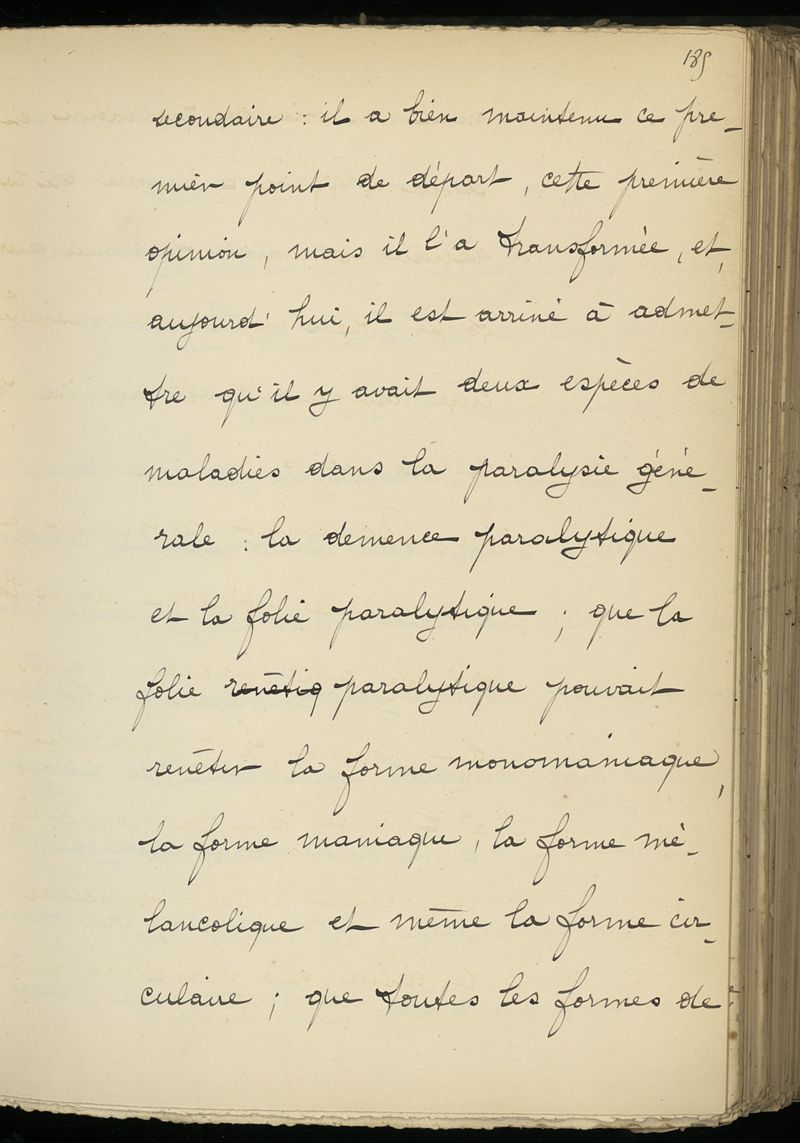 189
secondaire : il a bien maintenu ce pre-
mier point de départ, cette première
opinion, mais il l'a transformée, et,
aujourd'hui, il est arrivé à admet-
tre qu'il y avait deux espèces de
maladies dans la paralysie géné-
rale : la demence paralytique
et la folie paralytique ; que la
folie revêtiq paralytique pouvait
revêtir la forme monomaniaque,
la forme maniaque, la forme mé-
lancolique et même la forme cir-
culaire ; que toutes les formes de